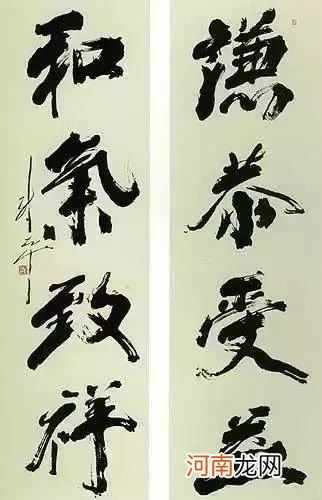 謙恭受益
和氣致祥
河南龙网